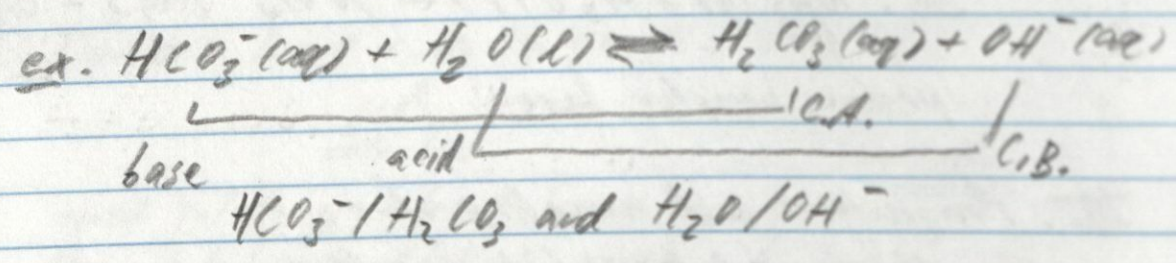 ex. HCO₃⁻(aq) + H₂O(l) ⇌ H₂CO₃(aq) + OH⁻(aq)
C.A.
base acid C.B.
HCO₃⁻/H₂CO₃ and H₂O/OH⁻